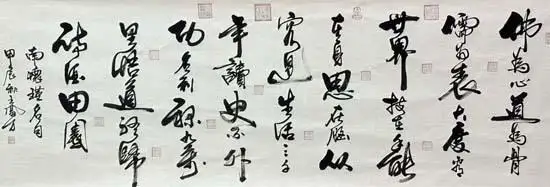 佛為心道為骨
儒為表大度看
世界技在手能
在身思在腦从
容過生活三千
年讀史不外
功名利祿九萬
里悟道終歸
詩酒田園
南懷瑾名句
甲辰秋